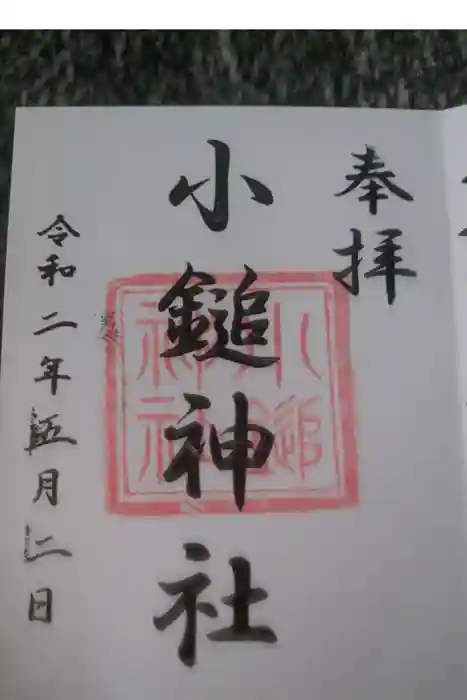 奉拝
小鎚神社
小鎚神社
令和二年五月二日